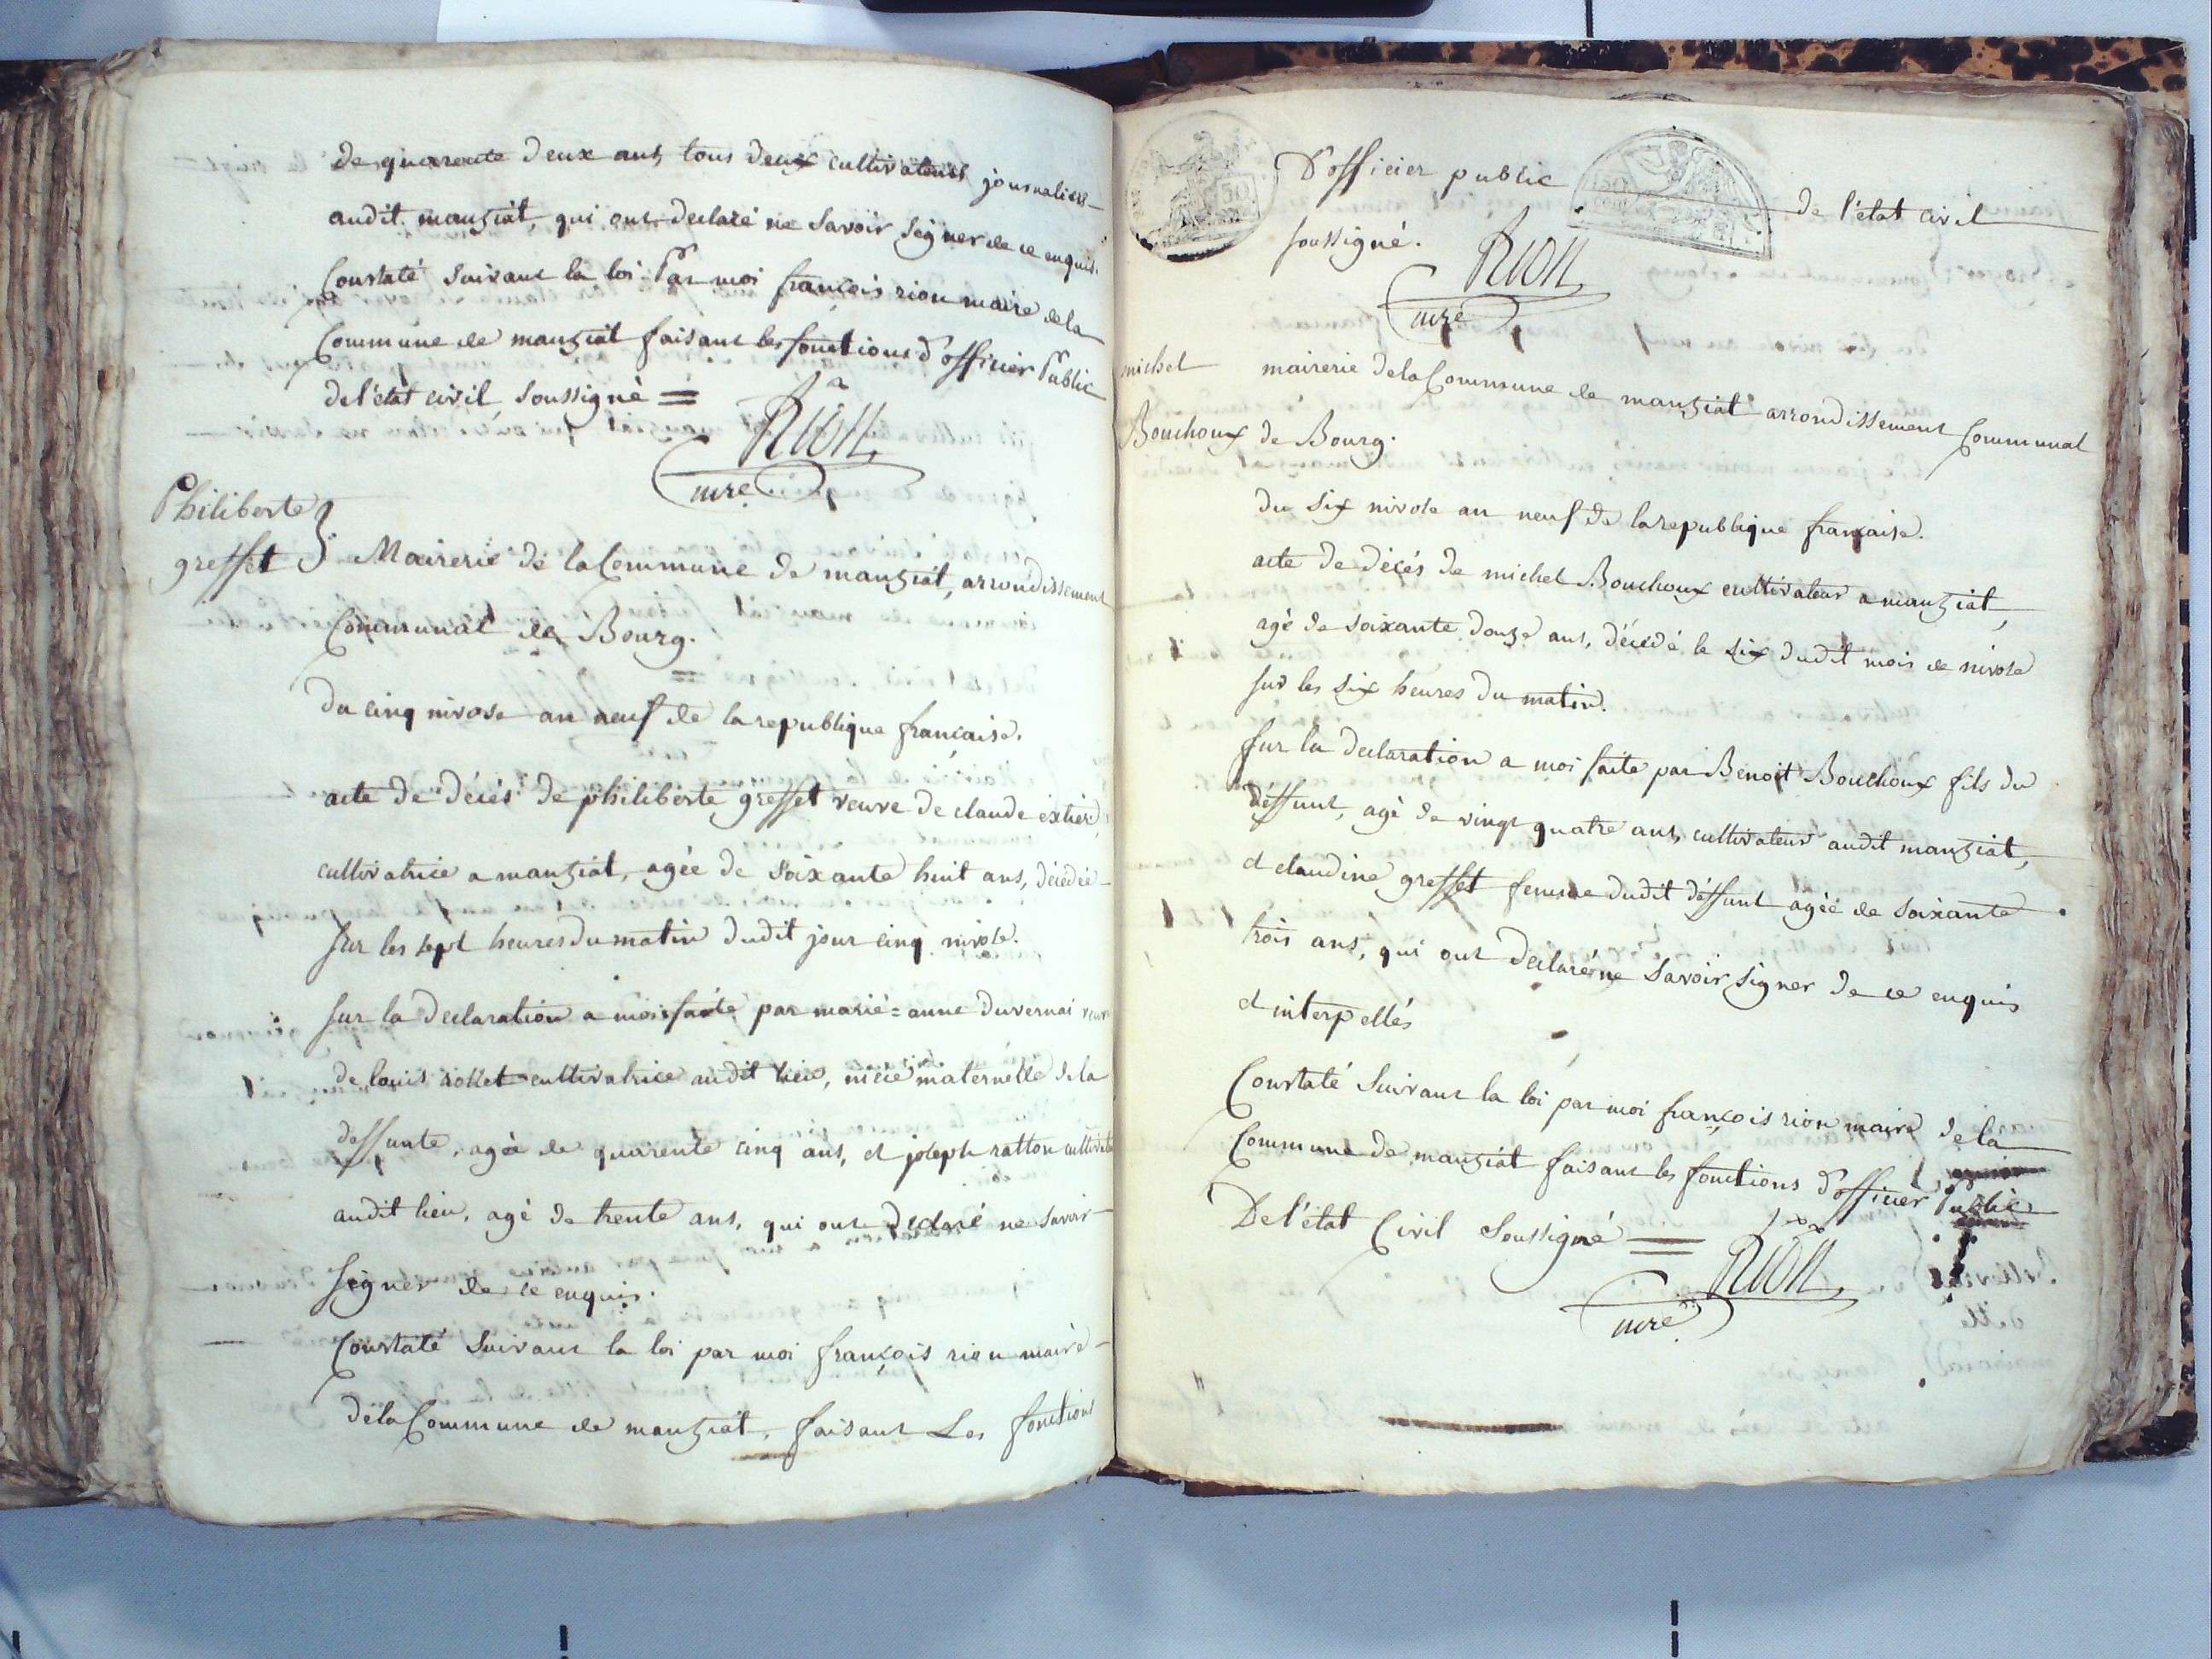 de quarente deux ans, tous deux cultivateurs journaliers
audit manziat, qui ont declaré ne savoir signer de ce enquis.
Constaté suivant la loi Par moi françois rion maire de la
Commune de manziat faisant les fonctions d'officier Public
de l'état civil, soussigné =
Rion
mre
Philiberte
greffet
Mairerie de la Commune de manziat, arrondissement
Communal de Bourg.
du cinq nivose an neuf de la republique francaise.
acte de décés de philiberte greffet veuve de claude extier,
cultivatrice a manziat, agée de soixante huit ans, décédée
sur les sept heures du matin dudit jour cinq nivose.
sur la declaration a moi faite par marie=anne duvernai veuve
de louis rollet cultivatrice audit lieu, niéce maternelle de la
deffunte, agée de quarente cinq ans, et joseph ratton
audit lieu, agé de trente ans, qui ont declaré ne savoir
signer de ce enquis.
Constaté suivant la loi par moi françois rion maire
de la Commune de manziat, faisant Les fonctions
d'officier public de l'état civil
soussigné.
Rion
mre
michel
Bouchoux
mairerie de la Commune de manziat arrondissement Communal
de Bourg.
du six nivose an neuf de la republique française.
acte de décés de michel Bouchoux cultivateur a manziat,
agé de soixante douze ans, décédé le six dudit mois de nivose
sur les six heures du matin.
sur la declaration a moi faite par Benoit Bouchoux fils du
déffunt, agé de vingt quatre ans, cultivateur audit manziat,
et claudine greffet femme dudit déffunt agée de soixante
trois ans, qui ont declaré ne savoir signer de ce enquis
et interpellés
Constaté suivant la loi par moi françois rion maire de la
Commune de manziat faisant les fonctions d'officier Public
De l'état Civil soussigné =
Rion
mre